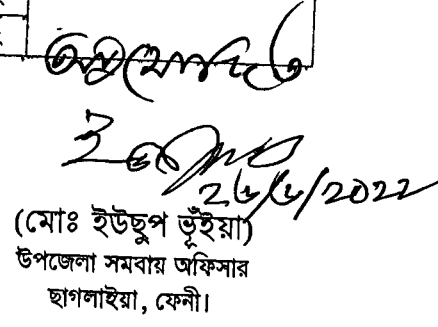 অনুমোদিত
(মোঃ ইউছুপ ভূঁইয়া)
উপজেলা সমবায় অফিসার
ছাগলাইয়া, ফেনী।